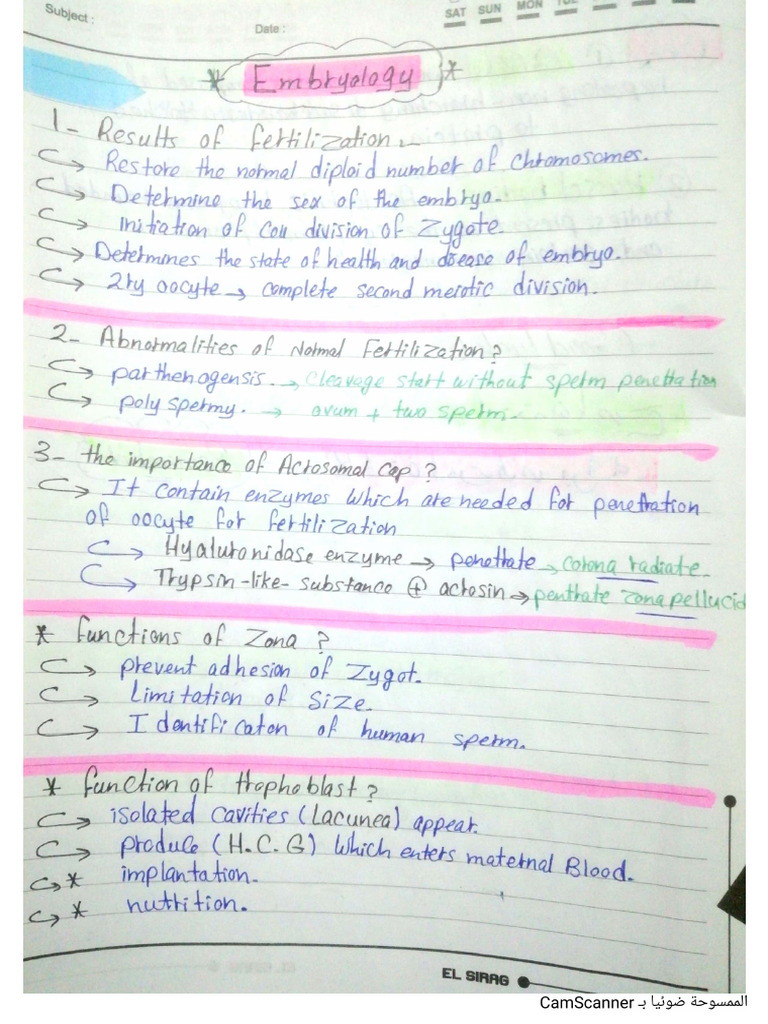 Subject :
Date :
SAT SUN MON TUE
* Embryology *
1- Results of fertilization.
Restore the normal diploid number of chromosomes.
Determine the sex of the embryo.
initiation of Cell division of Zygote.
Determines the state of health and disease of embryo.
2ry oocyte → complete second meiotic division.
2- Abnormalities of Normal Fertilization?
parthenogensis. → Cleavage start without sperm penetration
poly spermy. → ovum + two sperm.
3- the importance of Acrosomal cap?
It contain enzymes which are needed for penetration
of oocyte for fertilization
Hyaluronidase enzyme → penetrate → corona radiate.
Trypsin-like-substance ⊕ acrosin → penthrate zona pellucid
* functions of Zona?
prevent adhesion of Zygot.
Limitation of Size.
Identificaton of human sperm.
* function of trophoblast?
isolated cavities (Lacunea) appear.
produce (H.C.G) which enters maternal Blood.
* implantation.
* nutrition.
EL SIRAG
الممسوحة ضوئيا بـ CamScanner